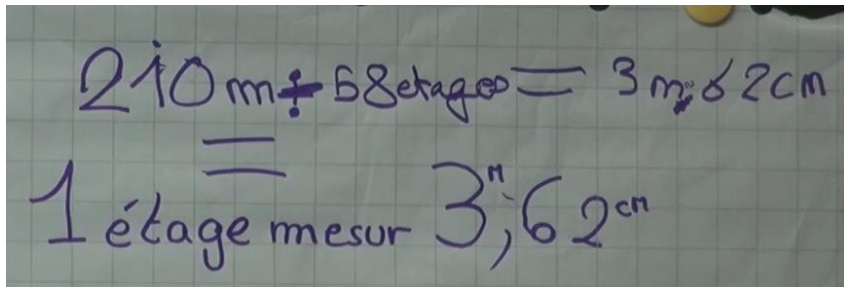 210m ÷ 58 etages = 3m,62cm
=
1 étage mesur 3m,62cm